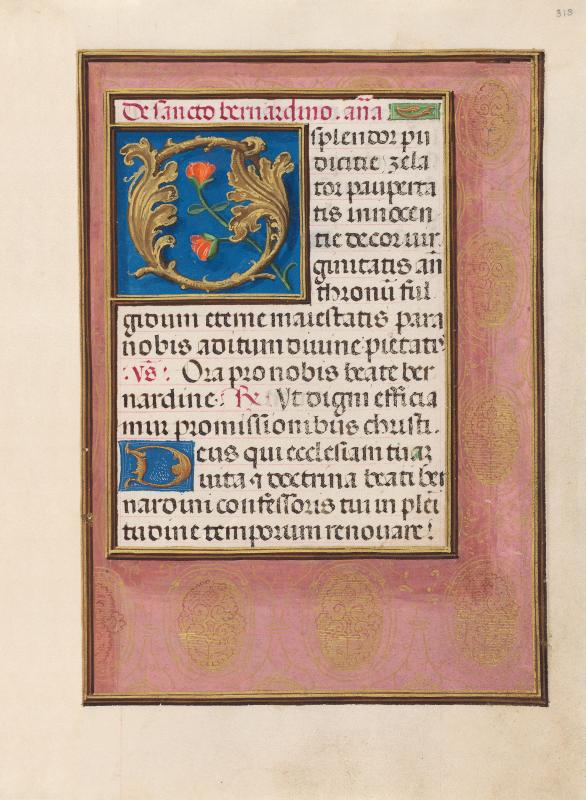 318
De sancto bernardino. an̄a
O splendor pu
dicitie zela
tor pauperta
tis innocen
tie decor uir
ginitatis an
thronū ful
gidum eterne maiestatis para
nobis aditum diuine pietatis
: Vs̄ : Ora pro nobis beate ber
nardine. R̄ Vt digni efficia
mur promissionibus christi.
Deus qui ecclesiam tuā
uita ⁊ doctrina beati ber
nardini confessoris tui in plei
tudine temporum renouare